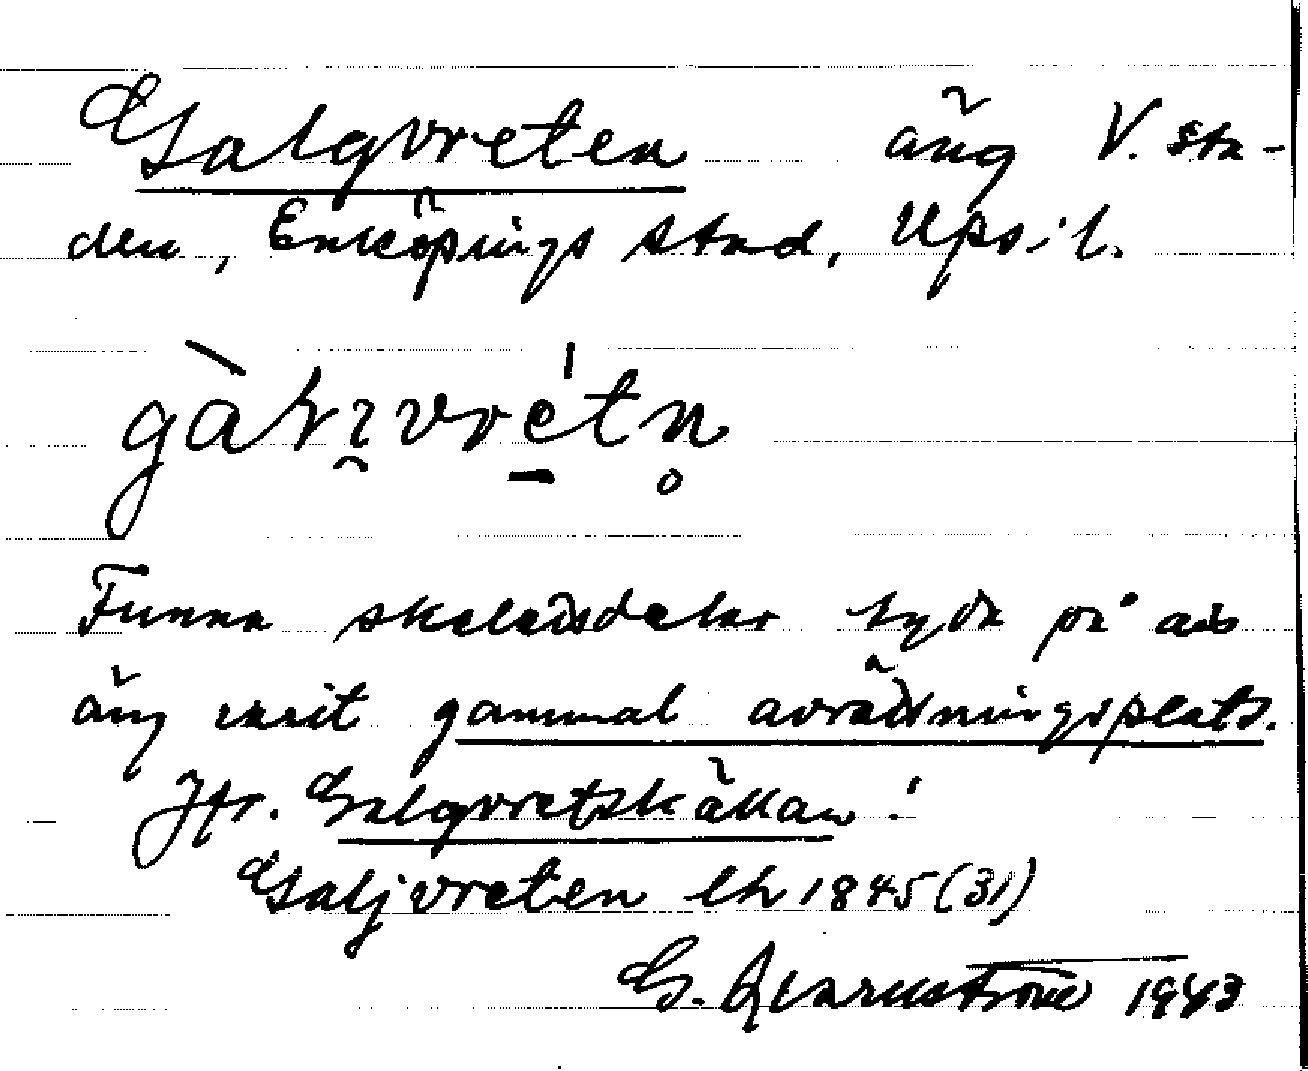 Galgvreten äng V. sta-
den, Enköpings stad, Upps. l.
Funna skelettdelar tyda på att
äng varit gammal avrättningsplats.
Jfr. Galgvretsbäkan!
Galjvreten lh 1845 (31)
G. Qvarnström 1943